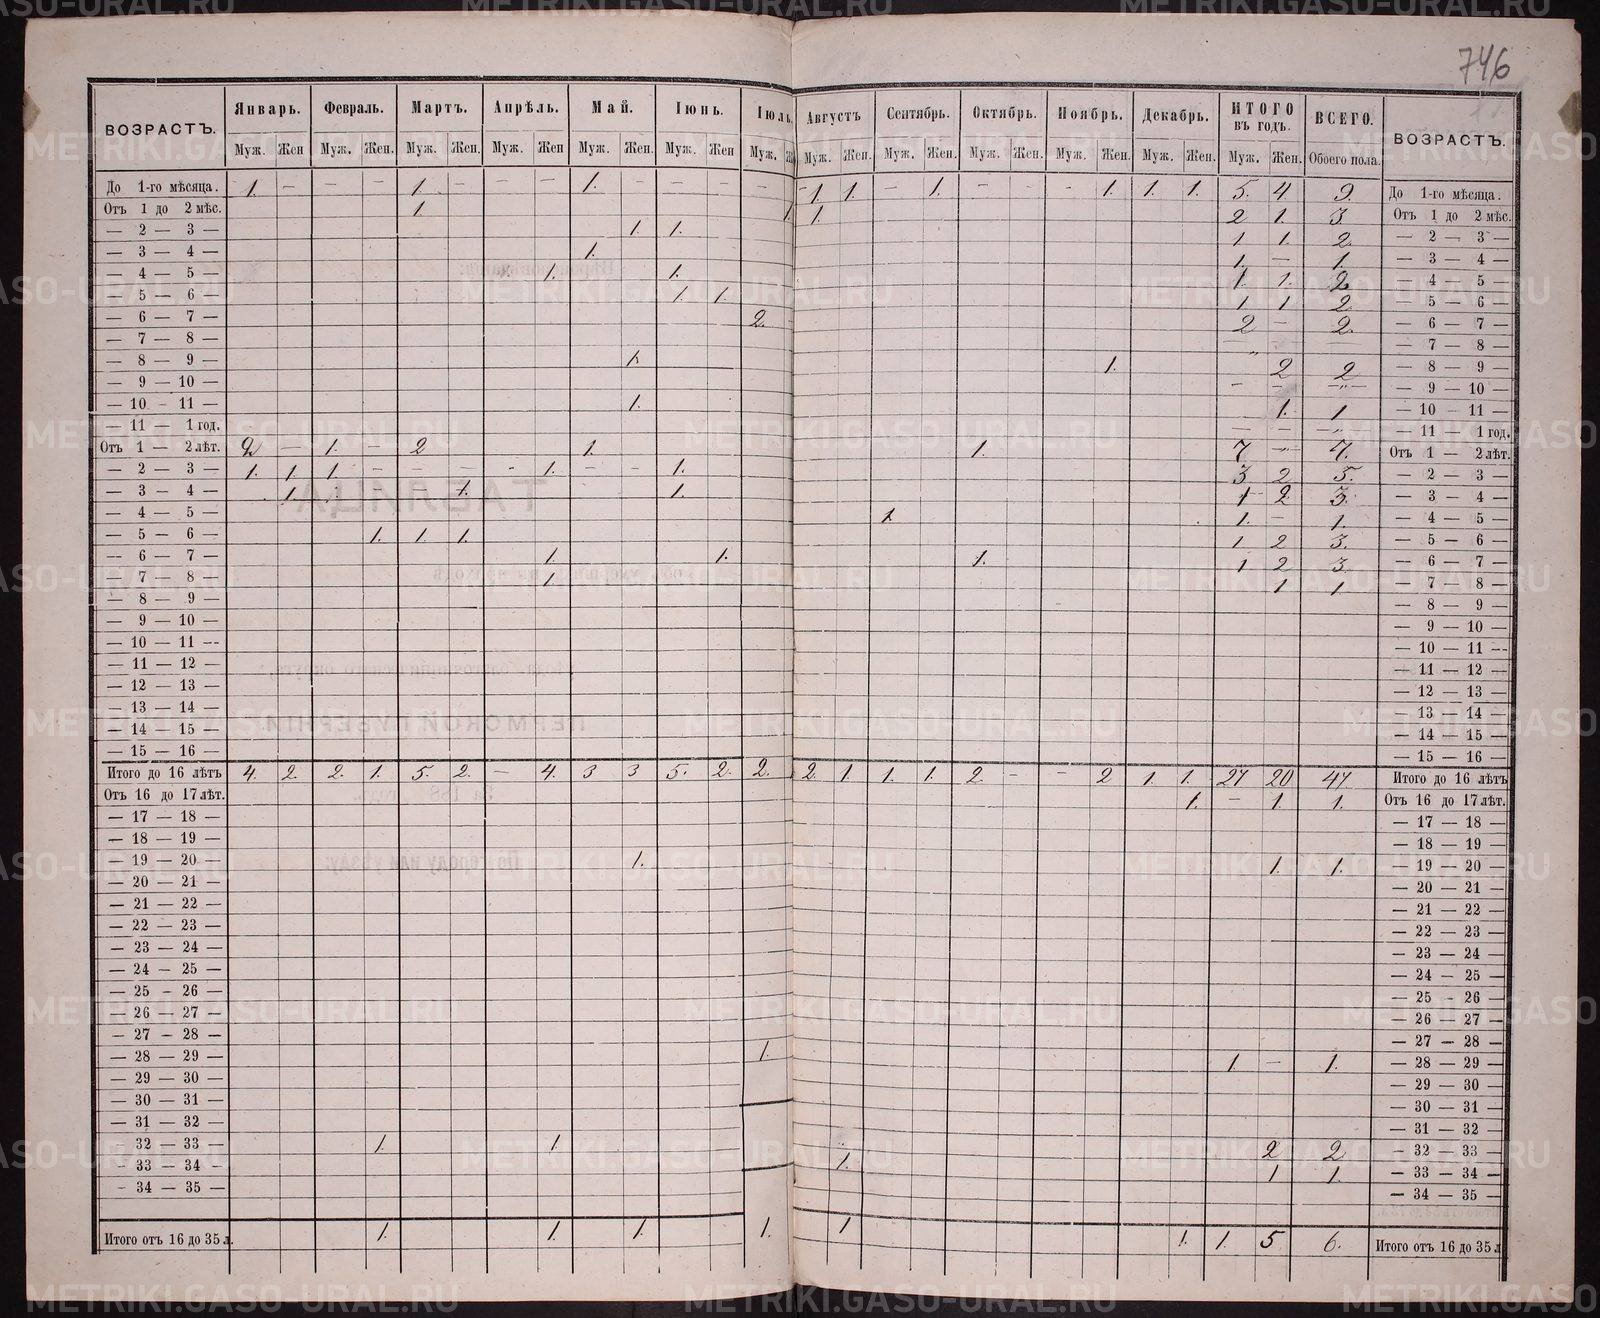 746
ВОЗРАСТЪ. Январь. Февраль. Мартъ. Апрѣль. Май. Іюнь. Іюль Августъ Сентябрь. Октябрь. Ноябрь. Декабрь. ИТОГО въ годъ. ВСЕГО. ВОЗРАСТЪ.
Муж. Жен Муж. Жен. Муж. Жен. Муж. Жен Муж. Жен. Муж. Жен Муж. Муж. Жен. Муж. Жен. Муж. Жен. Муж. Жен. Муж. Жен. Муж. Жен. Обоего пола.
До 1-го мѣсяца. 1. — — — 1. — — — 1. — — — — — 1. 1. — 1. — — - 1. 1. 1. 5. 4. 9. До 1-го мѣсяца.
Отъ 1 до 2 мѣс. 1. 1. 1. 2 1. 3. Отъ 1 до 2 мѣс.
— 2 — 3 — 1. 1. 1 1. 2. — 2 — 3 —
— 3 — 4 — 1. 1. — 1. — 3 — 4 —
— 4 — 5 — 1. 1. 1 1. 2 — 4 5 —
— 5 — 6 — 1. 1. 1 1 2 — 5 — 6 —
— 6 — 7 — 2. 2 — 2. — 6 — 7 —
— 7 — 8 — — 7 — 8 —
— 8 — 9 — 1. 1. 2 2 — 8 — 9 —
— 9 — 10 — — 9 — 10 —
— 10 - 11 — 1. 1. 1 — 10 11 —
— 11 — 1 год. — 11 1 год.
Отъ 1 — 2 лѣт. 2 — 1. — 2 1. 1. 7 — 7. Отъ 1 — 2 лѣт.
— 2 — 3 — 1. 1 1 — — — - 1. — — 1. 3 2 5. — 2 — 3 —
— 3 — 4 — 1. 1. 1. 1 2 3. — 3 — 4 —
— 4 — 5 — 1. 1. — 1. — 4 — 5 —
— 5 — 6 — 1. 1. 1. 1 2 3. — 5 — 6 —
— 6 — 7 — 1. 1. 1. 1 2 3. — 6 — 7 —
— 7 — 8 — 1. 1 1. — 7 — 8 —
— 8 — 9 — — 8 — 9 —
— 9 — 10 — — 9 — 10 —
— 10 — 11 — — 10 — 11 —
— 11 — 12 — — 11 — 12 —
— 12 — 13 — — 12 — 13 —
— 13 — 14 — 13 — 14 —
— 14 — 15 — — 14 — 15 —
— 15 — 16 — — 15 — 16 —
Итого до 16 лѣтъ 4. 2. 2. 1. 5. 2. — 4. 3 3 5. 2. 2. 2. 1 1. 1. 2. - - 2 1. 1. 27 20 47. Итого до 16 лѣтъ
Отъ 16 до 17 лѣт. 1. — 1 1. Отъ 16 до 17 лѣт.
— 17 — 18 — — 17 — 18 —
— 18 — 19 — — 18 — 19 —
— 19 — 20 — 1. 1. 1. — 19 — 20 —
— 20 — 21 — — 20 — 21 —
— 21 — 22 — — 21 — 22 —
— 22 — 23 — — 22 — 23 —
— 23 — 24 — — 23 — 24 —
— 24 — 25 — — 24 — 25 —
— 25 - 26 — — 25 26 —
— 26 — 27 — — 26 — 27 —
— 27 - 28 — — 27 — 28 —
— 28 — 29 — 1. 1 — 1. — 28 — 29 —
— 29 — 30 — — 29 — 30 —
— 30 — 31 — — 30 — 31 —
— 31 — 32 — — 31 — 32 —
32 — 33 — 1. 1. 2 2 — 32 33 —
- 33 — 34 — 1. 1 1. — 33 — 34 —
- 34 — 35 — — 34 — 35 —
Итого отъ 16 до 35 л. 1. 1. 1. 1. 1 1. 1. 5 6. Итого отъ 16 до 35 л
METRIKI.GASO-URAL.RU